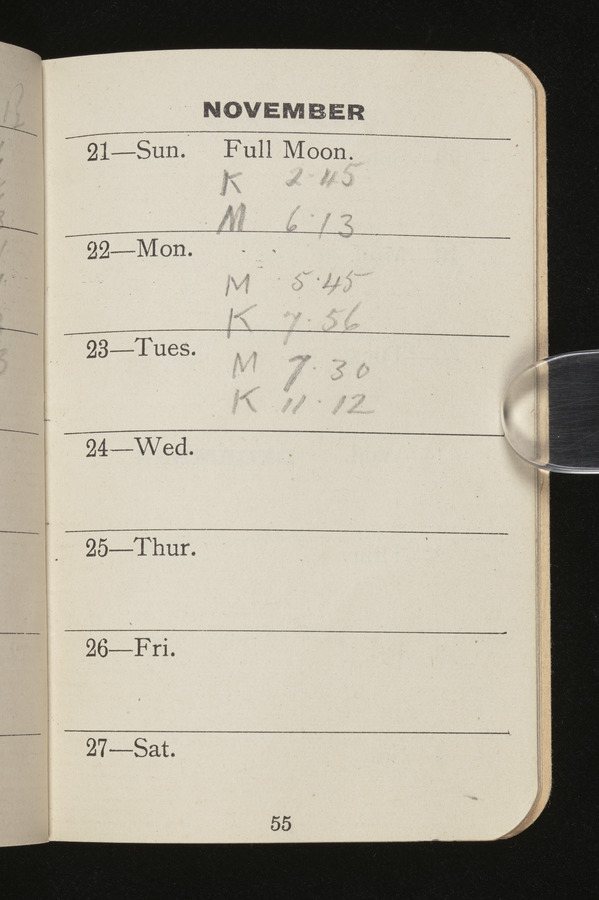 NOVEMBER
21—Sun. Full Moon.
K 2·45
M 6·13
22—Mon.
M 5·45
K 7·56
23—Tues.
M 7·30
K 11·12
24—Wed.
25—Thur.
26—Fri.
27—Sat.
55